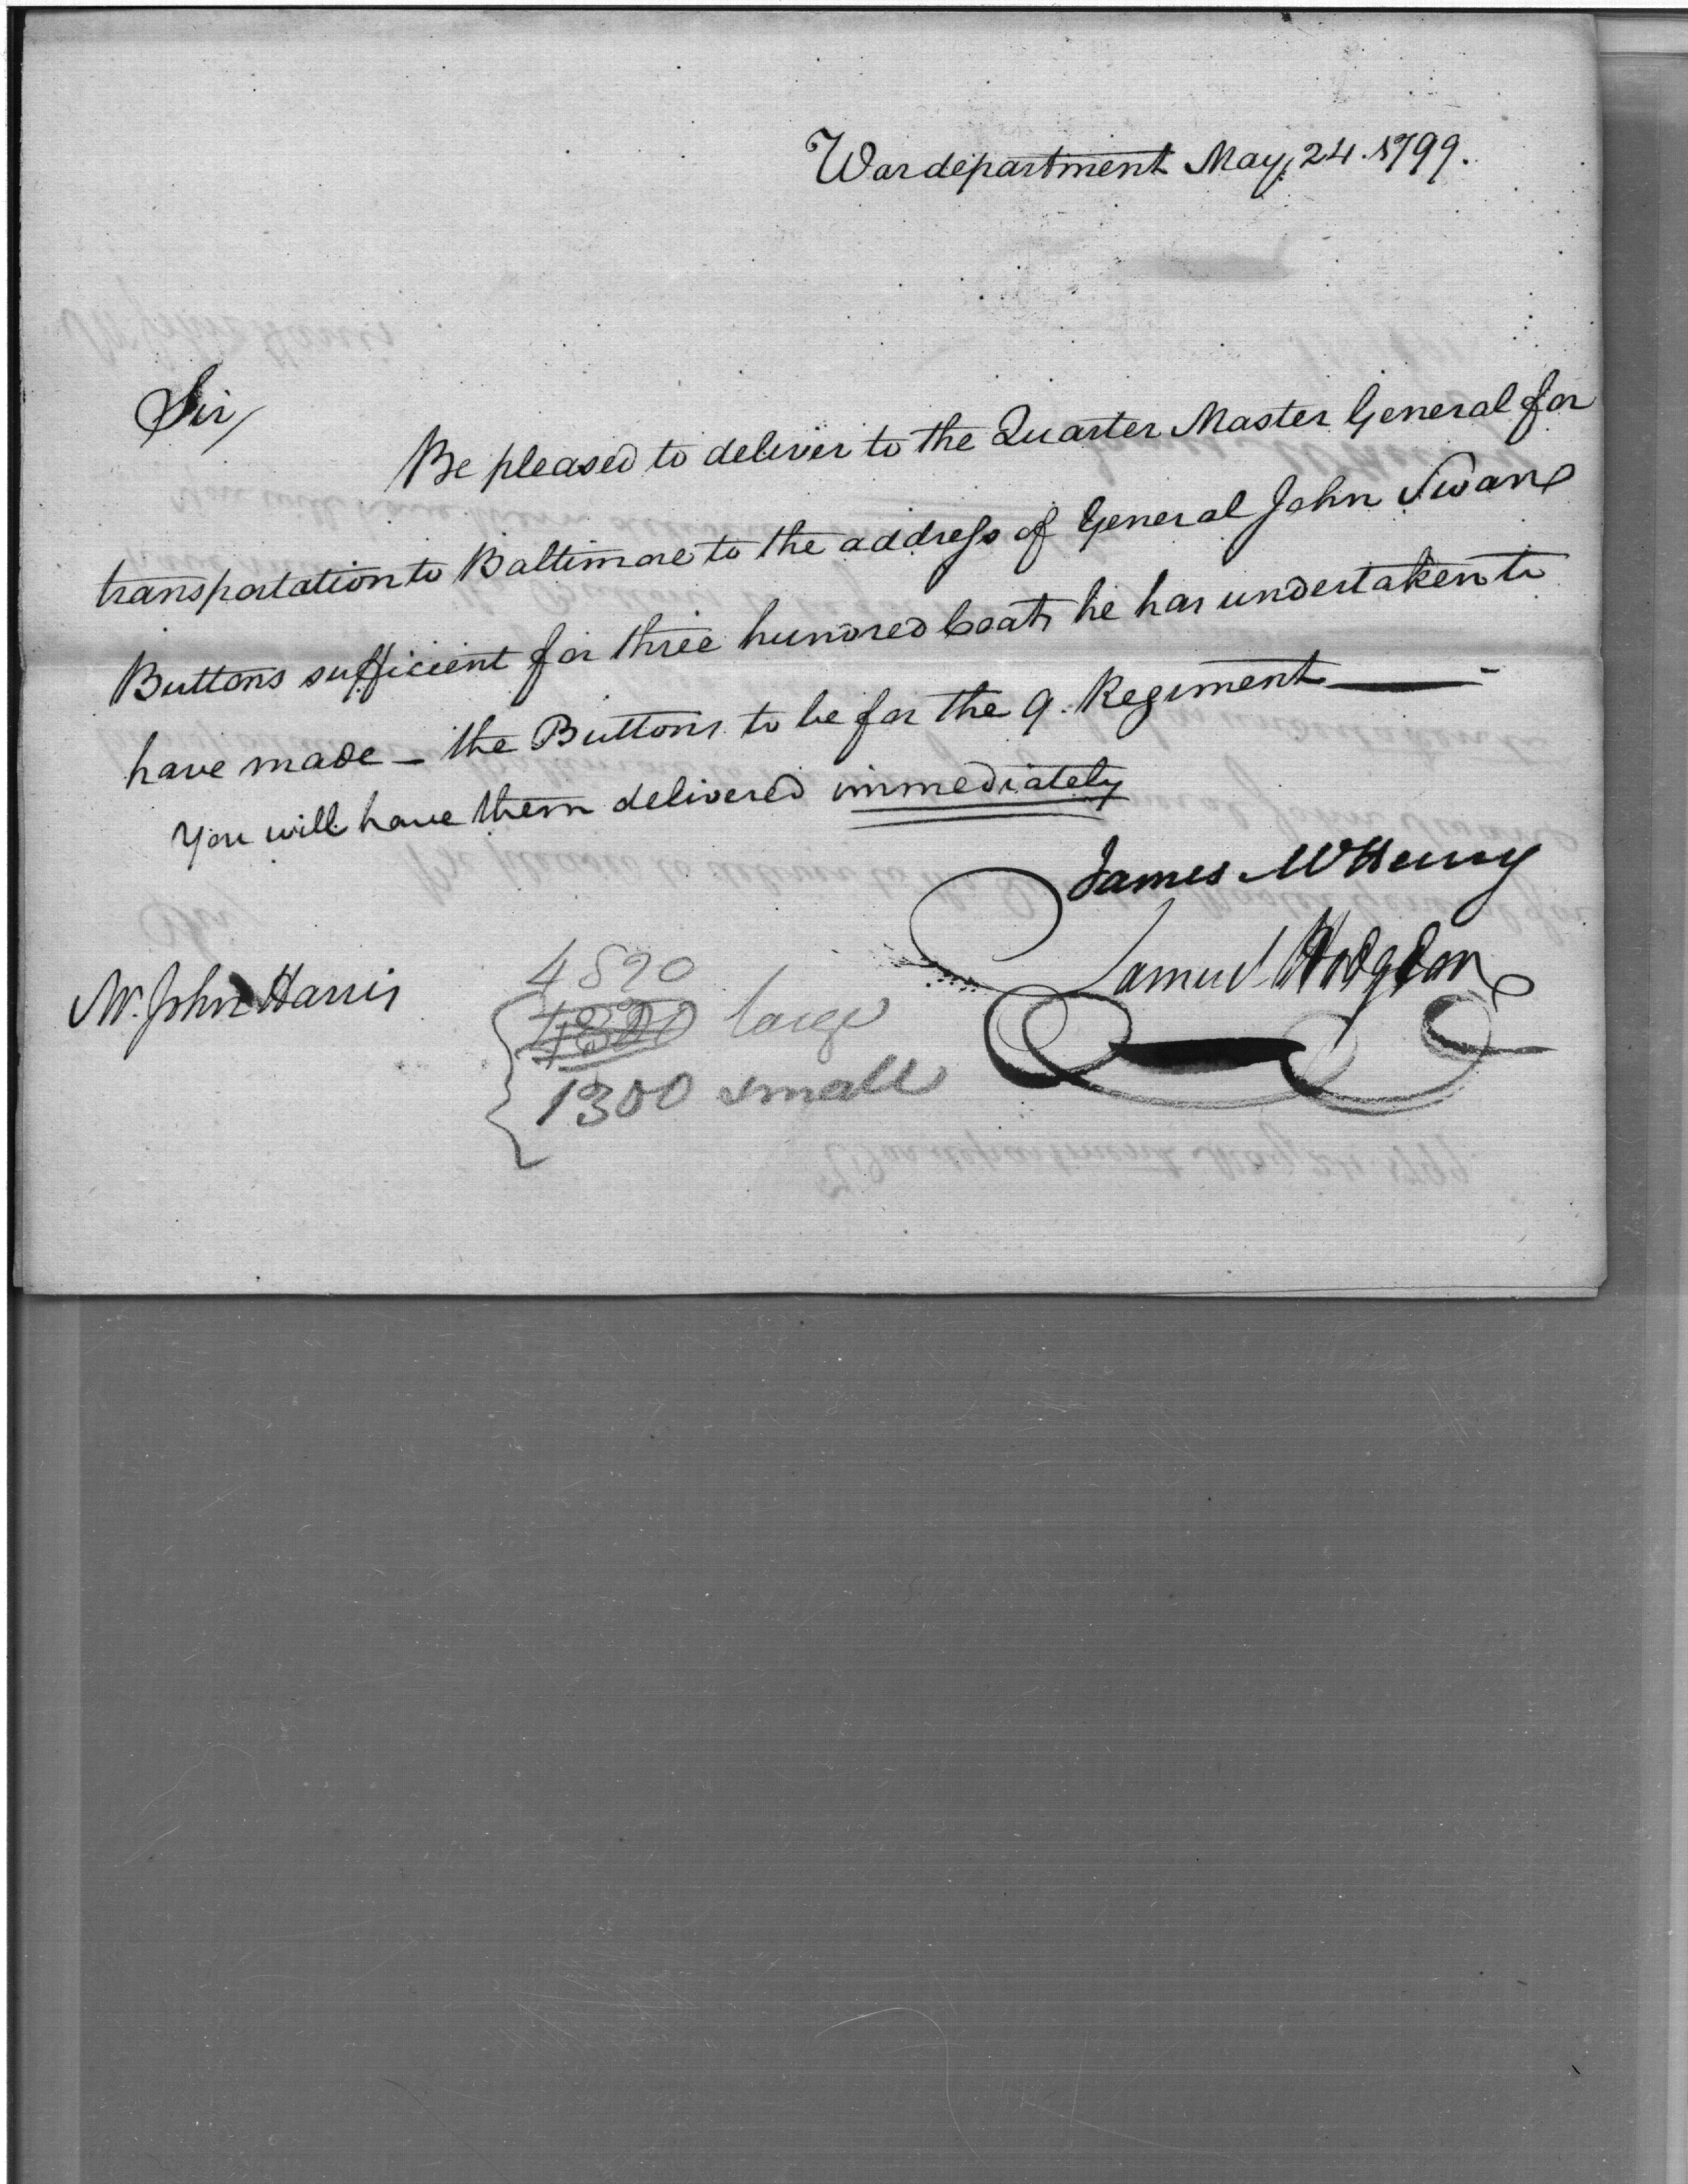 War department May, 24. 1799.
Sir/
Be pleased to deliver to the Quarter Master General for
transportation to Baltimore to the address of General John Swan
Buttons sufficient for three hundred Coats he has undertaken to
have made — the Buttons to be for the 9. Regiment ——
You will have them delivered immediately
James McHenry
Samuel Hodgdon
Mr. John Harris
4890
large
1300 small